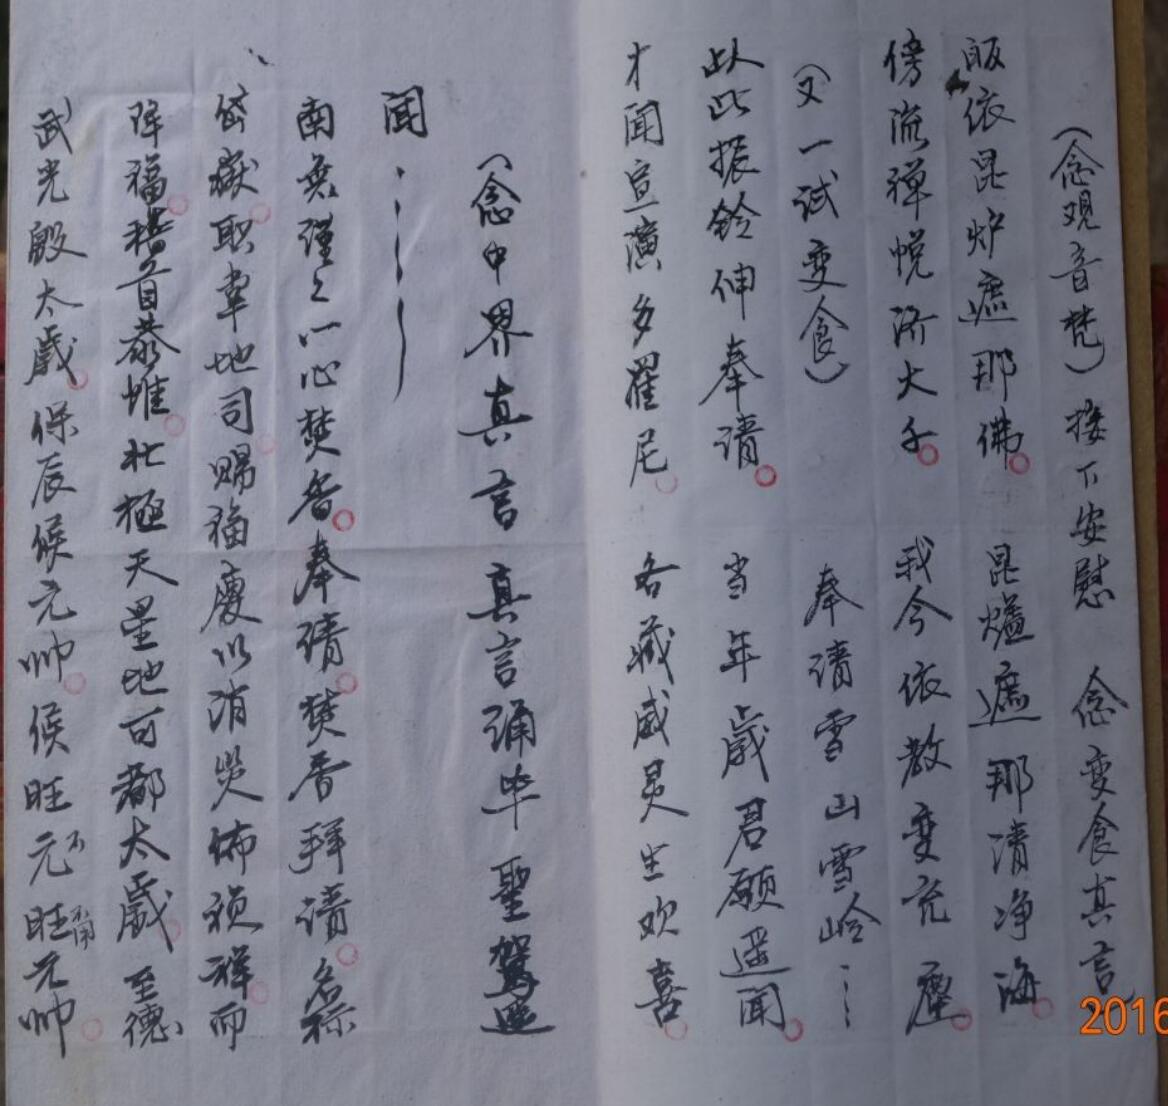 （念观音梵）接下安慰 念变食真言
皈依昆炉遮那佛 昆爐遮那清净海
傍流禅悦济大千 我今依教变充塵
（又一试变食） 奉请雪山雪岭
以此振鈴伸奉请 当年歲君願遥闻
才闻宣演多羅尼 各减威灵生欢喜
（念中界真言 真言诵毕 聖駕遥
闻
南無謹 心焚香奉请焚香拜请名标
岱嶽职掌地司赐福慶以消災佈祯祥而
降福稽首恭惟北極天星地司都太歲至德
武光殷太歲保辰候元帅候旺元旺元帅
不
2016